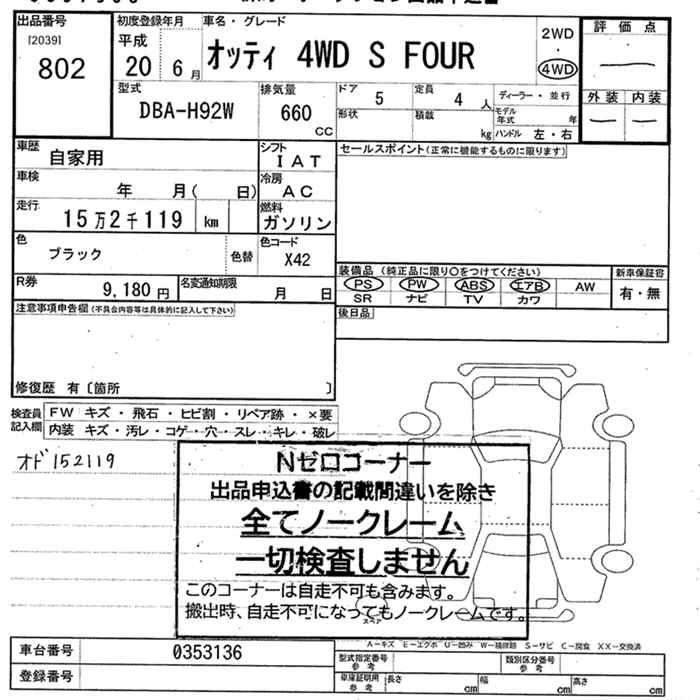 出品番号
[2039]
802
初度登録年月
平成
20 6月
車名・グレード
オッティ 4WD S FOUR
2WD
・
4WD
評価点
外装 内装
型式
DBA-H92W
排気量
660
cc
ドア
5
定員
4人
ディーラー・並行
形状
積載
kg
モデル年式 年
ハンドル 左・右
車歴
自家用
シフト
IAT
セールスポイント(正常に機能するものに限ります)
車検
年 月( 日)
冷房
AC
走行
15万2千119 km
燃料
ガソリン
色
ブラック
色替
色コード
X42
装備品 (純正品に限り○をつけてください)
新車保証書
PS PW ABS エアB AW
有・無
SR ナビ TV カワ
R券
9,180円
名変通知期限
月 日
後日品
注意事項申告欄(不具合内容等は具体的に記入して下さい)
修復歴 有〔箇所 〕
検査員記入欄
FW キズ・飛石・ヒビ割・リペア跡・×要
内装 キズ・汚レ・コゲ・穴・スレ・キレ・破レ
オド152119
Nゼロコーナー
出品申込書の記載間違いを除き
全てノークレーム
一切検査しません
このコーナーは自走不可も含みます。
搬出時、自走不可になってもノークレームです。
スペア
A-キズ E-エクボ U-凹み W-補修跡 S-サビ C-腐食 XX-交換済
車台番号
0353136
型式指定番号
参考
類別区分番号
参考
登録番号
車庫証明用
参考
長さ cm 幅 cm 高さ cm